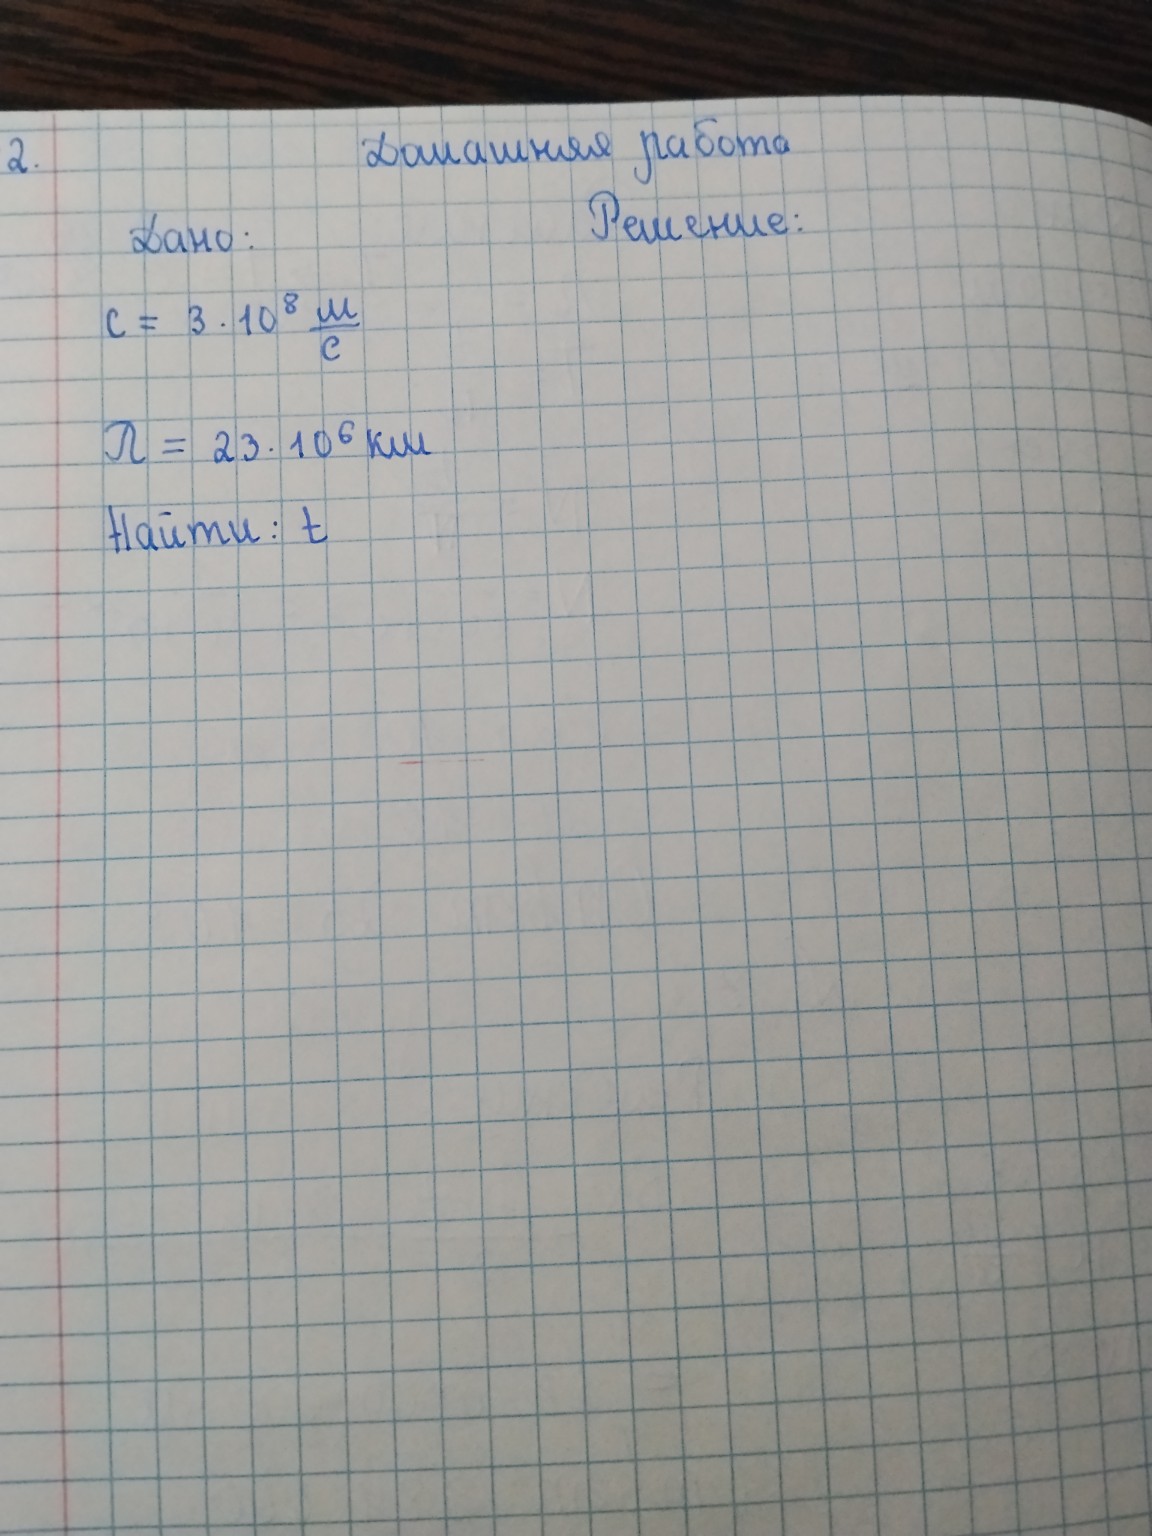 2. Домашняя работа
Дано: Решение:
c = 3 · 10⁸ м/с
Л = 23 · 10⁶ км
Найти: t